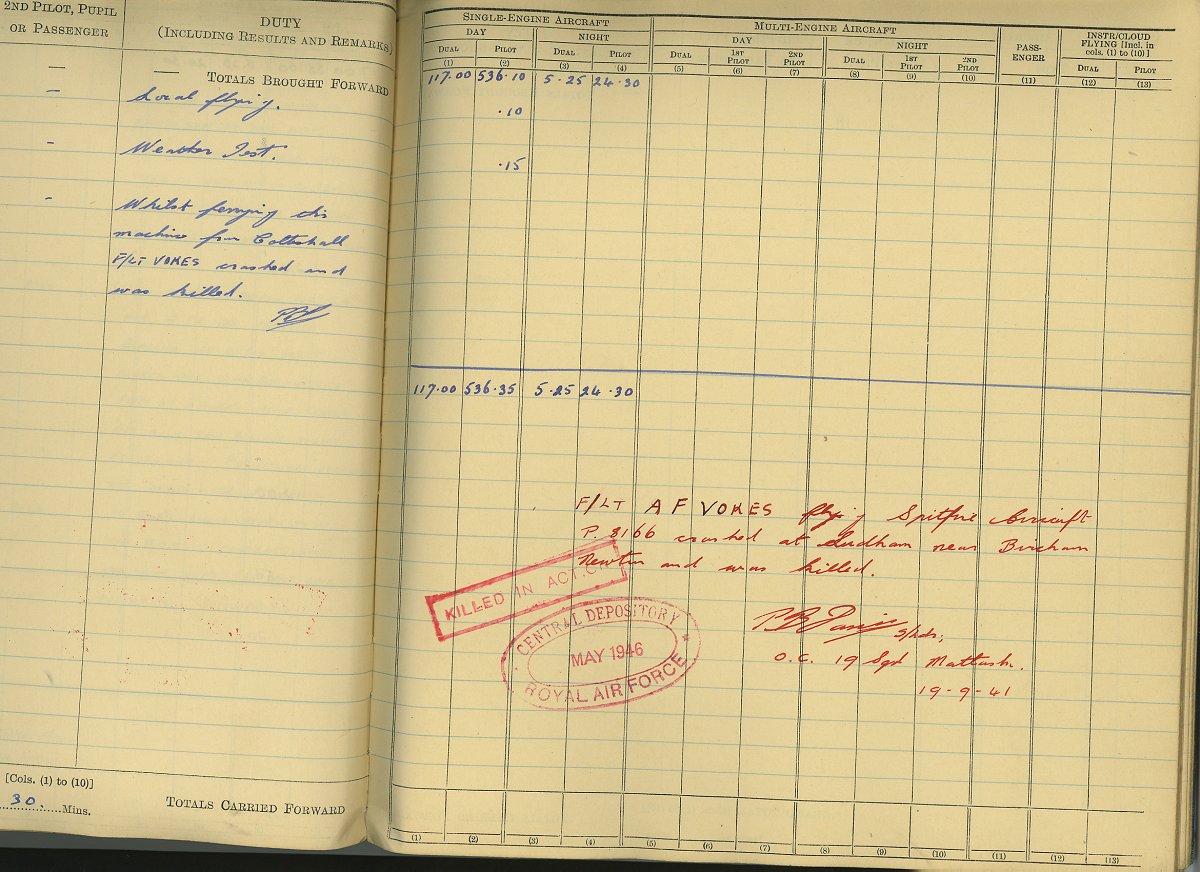 2ND PILOT, PUPIL
OR PASSENGER
DUTY
(INCLUDING RESULTS AND REMARKS)
— — TOTALS BROUGHT FORWARD
- Local flying.
- Weather Test.
- Whilst ferrying this
machine from Coltishall
F/LT VOKES crashed and
was killed.
[Cols. (1) to (10)]
30 Mins.
TOTALS CARRIED FORWARD
SINGLE-ENGINE AIRCRAFT MULTI-ENGINE AIRCRAFT PASS-ENGER INSTR/CLOUD FLYING [Incl. in cols. (1) to (10)]
DAY NIGHT DAY NIGHT
DUAL PILOT DUAL PILOT DUAL 1ST PILOT 2ND PILOT DUAL 1ST PILOT 2ND PILOT DUAL PILOT
(1) (2) (3) (4) (5) (6) (7) (8) (9) (10) (11) (12) (13)
117.00 536.10 5.25 24.30
.10
.15
117.00 536.35 5.25 24.30
F/LT A F VOKES flying Spitfire Aircraft
P. 8166 crashed at Ludham near Bircham
Newton and was killed.
KILLED IN
CENTRAL DEPOSITORY
MAY 1946
ROYAL AIR FORCE
S/Ldr,
O.C. 19 Sqd Matlask.
19-9-41
(1) (2) (3) (4) (5) (6) (7) (8) (9) (10) (11) (12) (13)